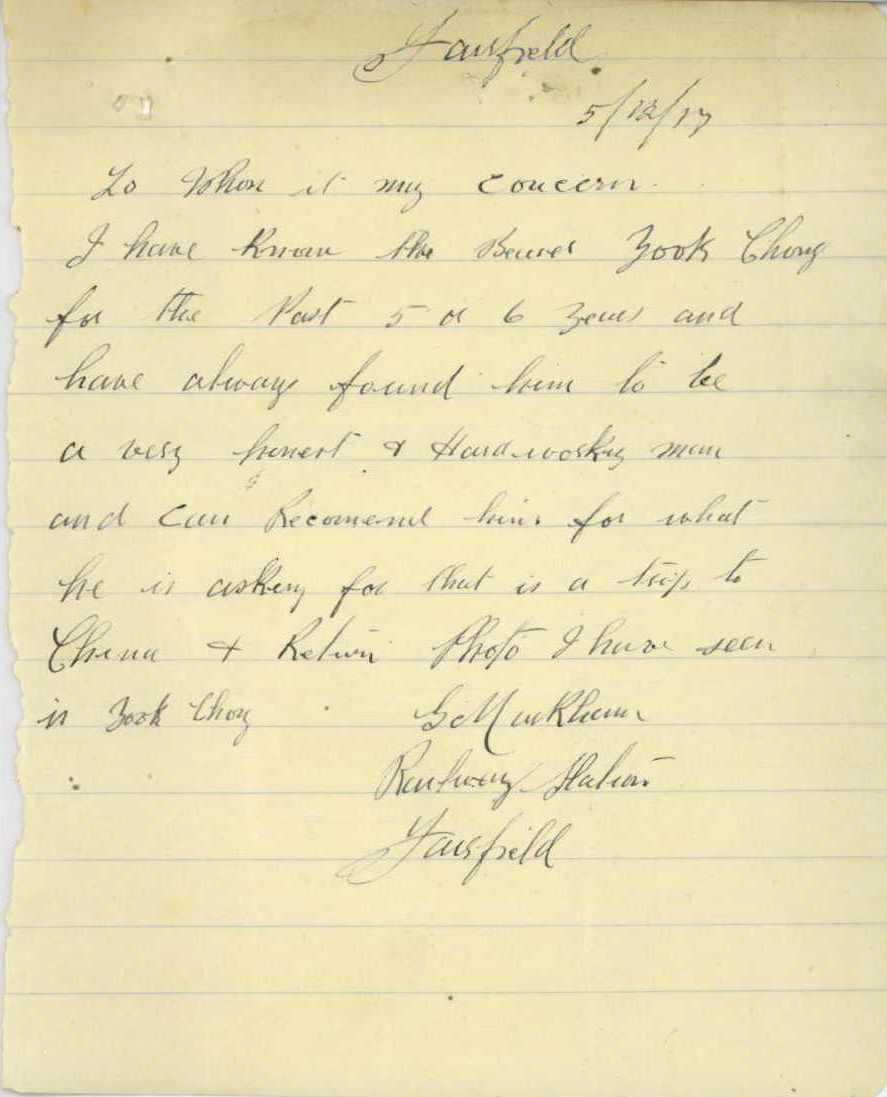 Fairfield
5/12/17
To Whom it my concern.
I have Known the Bearer Yook Chong
for the Past 5 or 6 Years and
have always found him to be
a very honest & Hardworking man
and can Recomend him for what
he is asking for that is a trip to
China & Return Photo I have seen
is Yook Chong G Markham
Railway Station
Fairfield